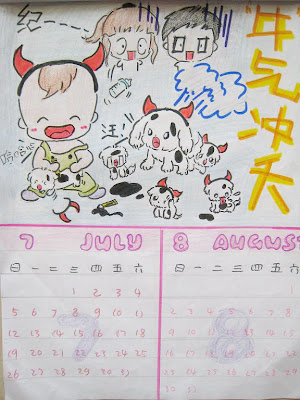 牛气冲天
汪!!
哈哈哈
7 JULY
日 一 二 三 四 五 六
1 2 3 4
5 6 7 8 9 10 11
12 13 14 15 16 17 18
19 20 21 22 23 24 25
26 27 28 29 30 31
8 AUGUST
日 一 二 三 四 五 六
1
2 3 4 5 6 7 8
9 10 11 12 13 14 15
16 17 18 19 20 21 22
23 24 25 26 27 28 29
30 31